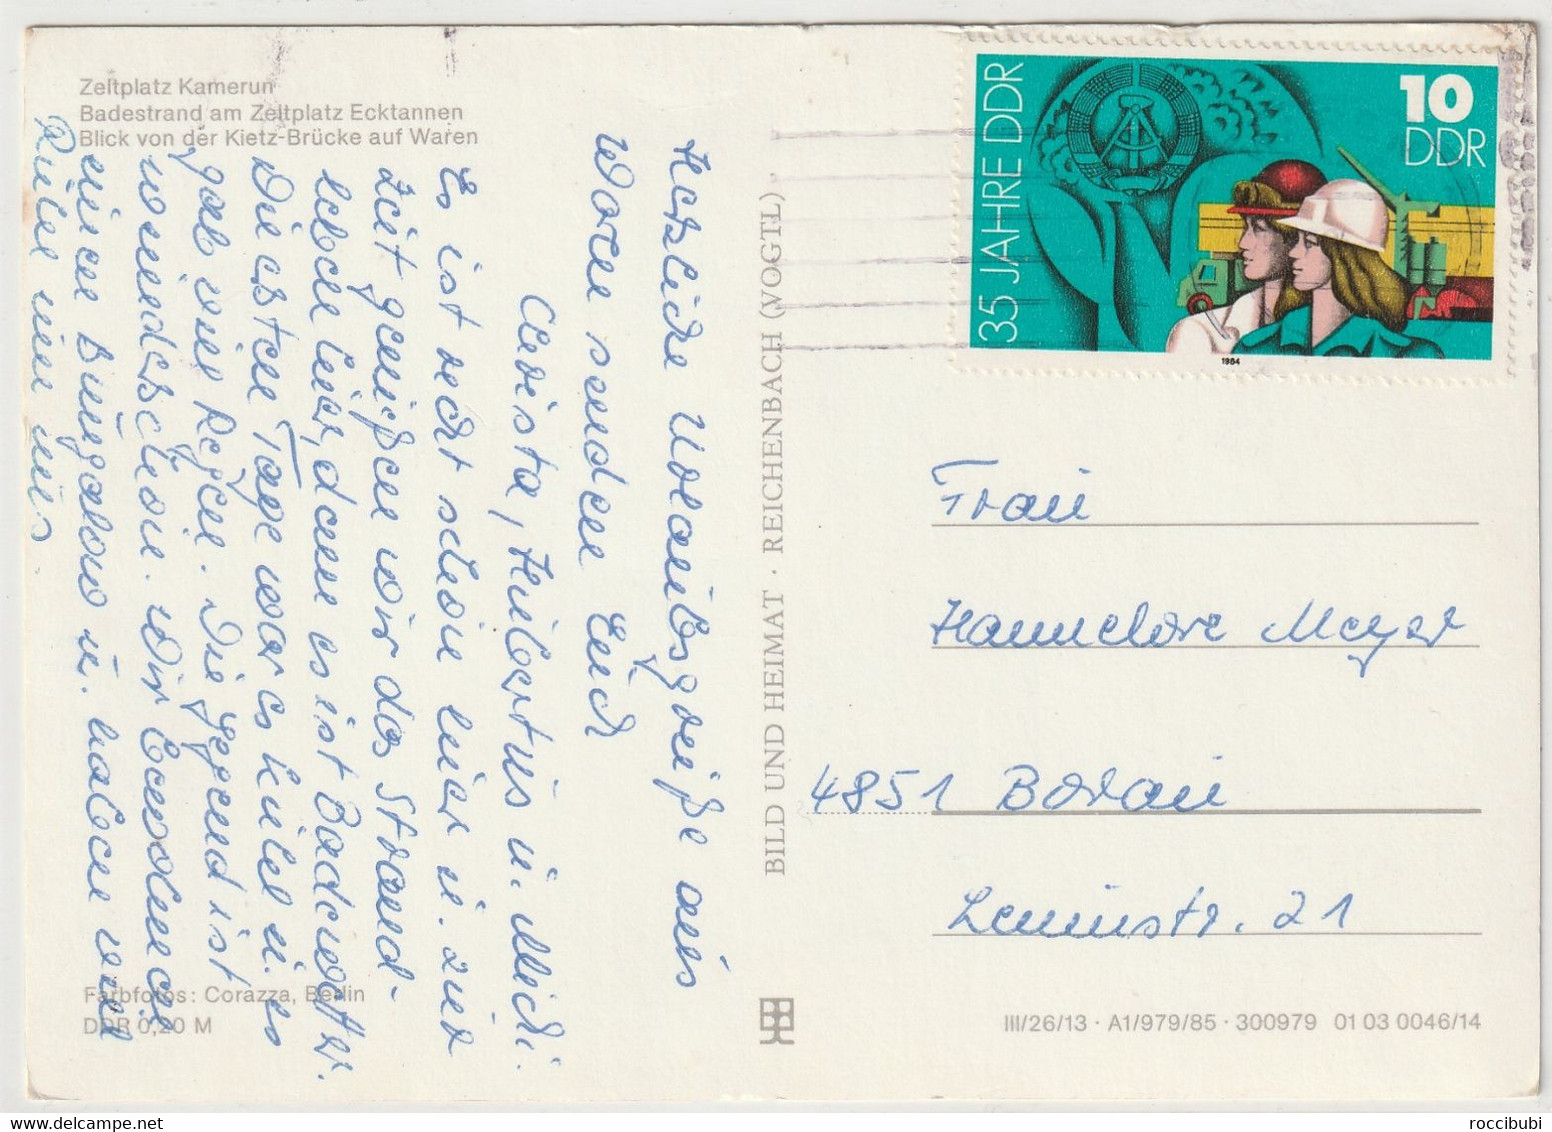 Zeltplatz Kamerun
Badestrand am Zeltplatz Ecktannen
Blick von der Kietz-Brücke auf Waren
Herzliche Urlaubsgrüße aus
Waren senden Euch
Christa, Hubertus u. Michi.
Es ist sehr schön hier u. zur
Zeit genießen wir das Strand-
leben hier, denn es ist Badewetter.
Die ersten Tage war es kühl u. es
gab viel Regen. Die Gegend ist
wunderschön. Wir bewohnen
einen Bungalow u. haben viel
Ruhe um uns.
Farbfotos: Corazza, Berlin
DDR 0,20 M
BILD UND HEIMAT · REICHENBACH (VOGTL)
35 JAHRE DDR
10
DDR
1984
Frau
Hannelore Meyer
4851 Borau
Leninstr. 21
III/26/13 · A1/979/85 · 300979 01 03 0046/14
roccibubi